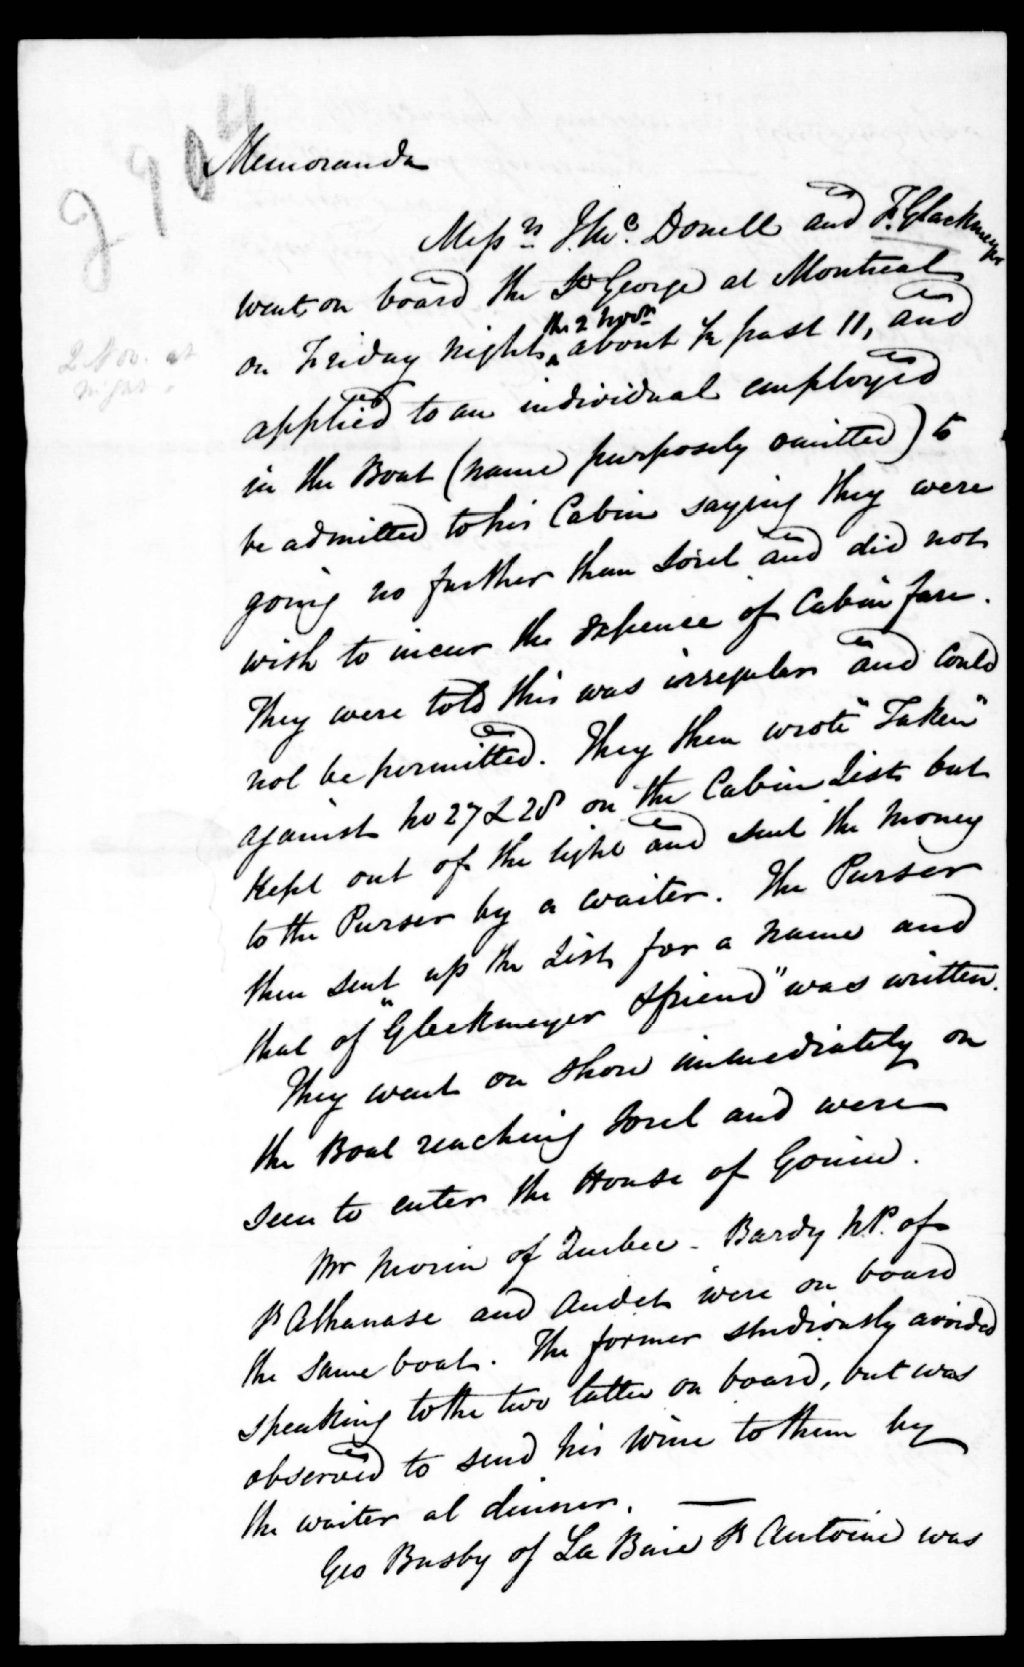 2904
Memoranda
Messrs J. McDonell and F. Glackmeyer
went on board the St George at Montreal
on Friday night the 2 Novr about ½ past 11, and
applied to an individual employed
in the Boat (name purposely omitted) to
be admitted to his Cabin saying they were
going no further than Sorel and did not
wish to incur the expence of Cabin fare.
They were told this was irregular and could
not be permitted. They then wrote "Taken"
against No 27 & 28 on the Cabin List but
kept out of the light and sent the money
to the Purser by a waiter. The Purser
then sent up the List for a name and
that of "Gleckmeyer & friend" was written.
They went on shore immediately on
the Boat reaching Sorel and were
seen to enter the House of Gouin.
Mr Morin of Quebec - Bardy N.P. of
St Athanase and Audet were on board
the same boat. The former studiously avoided
speaking to the two latter on board, but was
observed to send his wine to them by
the waiter at dinner. —
Geo Busby of La Baie St Antoine was
2 Nov. at
night.